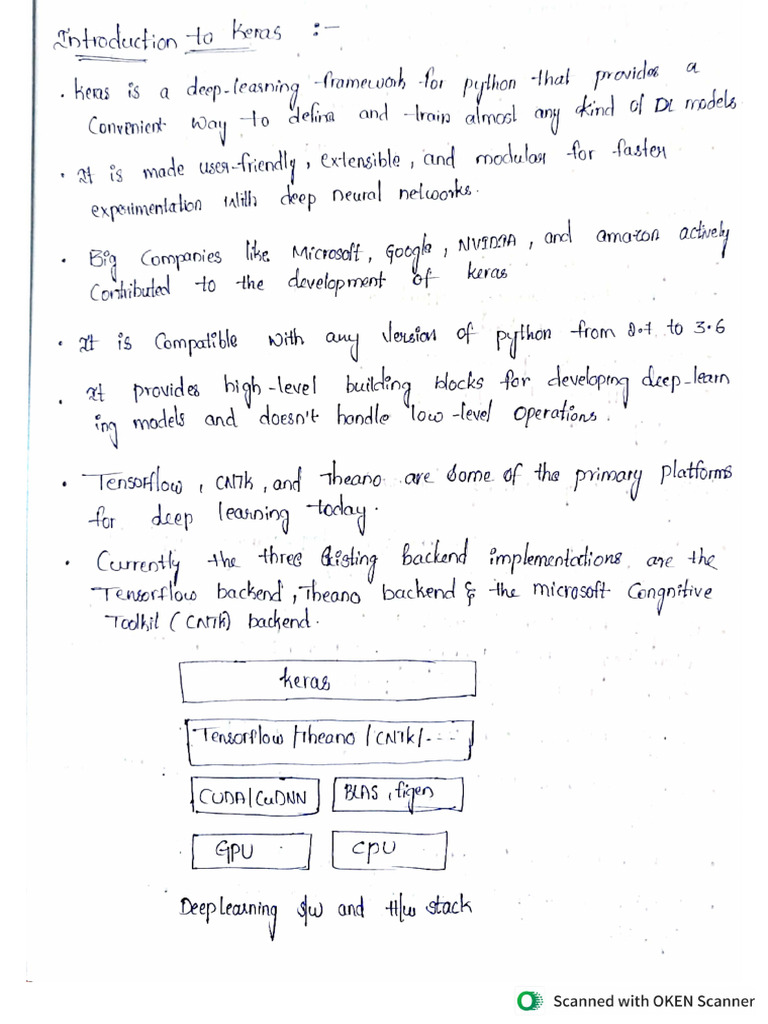 Introduction to Keras :-
. Keras is a deep-learning framework for python that provides a
Convenient way to define and train almost any kind of DL models
. It is made user-friendly, extensible, and modular for faster
experimentation with deep neural networks.
. Big Companies like Microsoft, Google, NVIDIA, and amazon actively
Contributed to the development of keras
. It is Compatible with any Version of python from 2.7 to 3.6
. It provides high-level building blocks for developing deep-learn
ing models and doesn't handle low-level operations.
. Tensorflow, CNTK, and Theano are some of the primary platforms
for deep learning today.
. Currently the three Existing backend implementations are the
Tensorflow backend, Theano backend & the microsoft Congnitive
Toolkit (CNTK) backend.
keras
Tensorflow /Theano /CNTK/----
CUDA/CuDNN BLAS, Eigen
GPU CPU
Deep Learning s/w and H/w stack
Scanned with OKEN Scanner